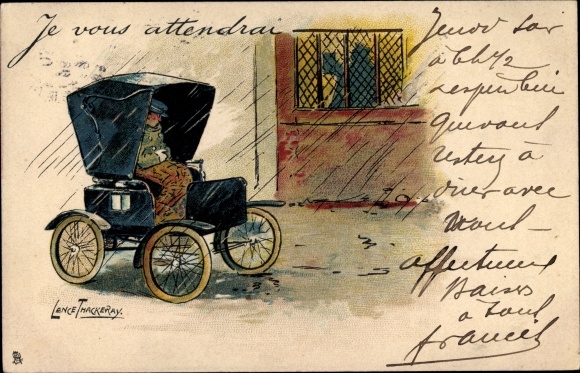 Je vous attendrai
Jeudi soir
à 6h 1/2
j'espère bien
que vous
resterez à
dîner avec
nous –
affectueux
Baisers
à tous
Francis
LANCE THACKERAY.